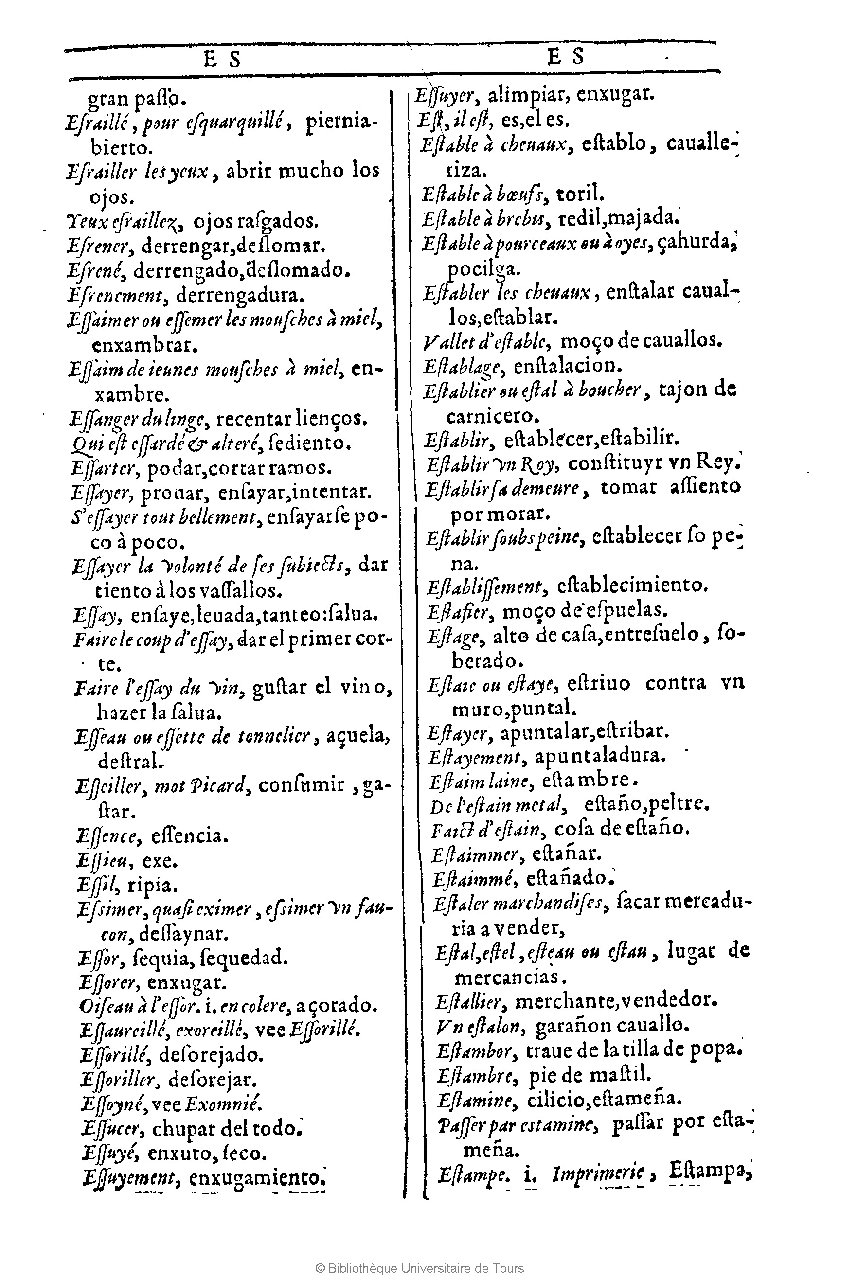 E S
gran paſſo.
Eſraillé, pour eſquarquillé, piernia-
bierto.
Eſrailler les yeux, abrir mucho los
ojos.
Yeux eſraillez, ojos raſgados.
Eſrener, derrengar,deſlomar.
Eſrené, derrengado,deſlomado.
Eſrenement, derrengadura.
Eſſaimer ou eſſemer les mouſches à miel,
enxambrar.
Eſſaim de ieunes mouſches à miel, en-
xambre.
Eſſanger du linge, recentar lienços.
Qui eſt eſſardé & alteré, ſediento.
Eſſarter, podar,cortar ramos.
Eſſayer, prouar, enſayar,intentar.
S'eſſayer tout bellement, enſayarſe po-
co à poco.
Eſſayer la volonté de ſes ſubiects, dar
tiento à los vaſſallos.
Eſſay, enſaye,leuada,tanteo:ſalua.
Faire le coup d'eſſay, dar el primer cor-
te.
Faire l'eſſay du vin, guſtar el vino,
hazer la ſalua.
Eſſeau ou eſſette de tonnelier, açuela,
deſtral.
Eſſciller, mot Picard, conſumir, ga-
ſtar.
Eſſence, eſſencia.
Eſſieu, exe.
Eſſil, ripia.
Eſsimer, quaſi eximer, eſsimer vn fau-
con, deſſaynar.
Eſſor, ſequia, ſequedad.
Eſſorer, enxugar.
Oiſeau à l'eſſor. i. en colere, açorado.
Eſſaureillé, exoreillé, vee Eſſorillé.
Eſſorillé, deſorejado.
Eſſoriller, deſorejar.
Eſſoyné, vee Exomnié.
Eſſucer, chupar del todo.
Eſſuyé, enxuto, ſeco.
Eſſuyement, enxugamiento.
E S
Eſſuyer, alimpiar, enxugar.
Eſt, il eſt, es,el es.
Eſtable à cheuaux, eſtablo, caualle-
riza.
Eſtable à bœufs, toril.
Eſtable à brebis, redil,majada.
Eſtable à pourceaux ou à oyes, çahurda,
pocilga.
Eſtabler les cheuaux, enſtalar caual-
los,eſtablar.
Vallet d'eſtable, moço de cauallos.
Eſtablage, enſtalacion.
Eſtablier ou eſtal à boucher, tajon de
carnicero.
Eſtablir, eſtablecer,eſtabilir.
Eſtablir vn Roy, conſtituyr vn Rey.
Eſtablir ſa demeure, tomar aſſiento
por morar.
Eſtablir ſoubs peine, eſtablecer ſo pe-
na.
Eſtabliſſement, eſtablecimiento.
Eſtafier, moço de eſpuelas.
Eſtage, alto de caſa,entreſuelo, ſo-
berado.
Eſtaie ou eſtaye, eſtriuo contra vn
muro,puntal.
Eſtayer, apuntalar,eſtribar.
Eſtayement, apuntaladura.
Eſtaim laine, eſtambre.
De l'eſtain metal, eſtaño,peltre.
Faict d'eſtain, coſa de eſtaño.
Eſtaimmer, eſtañar.
Eſtaimmé, eſtañado.
Eſtaler marchandiſes, ſacar mercadu-
ria a vender,
Eſtal,eſtel,eſteau ou eſtau, lugar de
mercancias.
Eſtallier, merchante,vendedor.
Vn eſtalon, garañon cauallo.
Eſtambor, traue de la tilla de popa.
Eſtambre, pie de maſtil.
Eſtamine, cilicio,eſtameña.
Paſſer par estamine, paſſar por eſta-
meña.
Eſtampe. i. Imprimerie, Eſtampa,
© Bibliothèque Universitaire de Tours